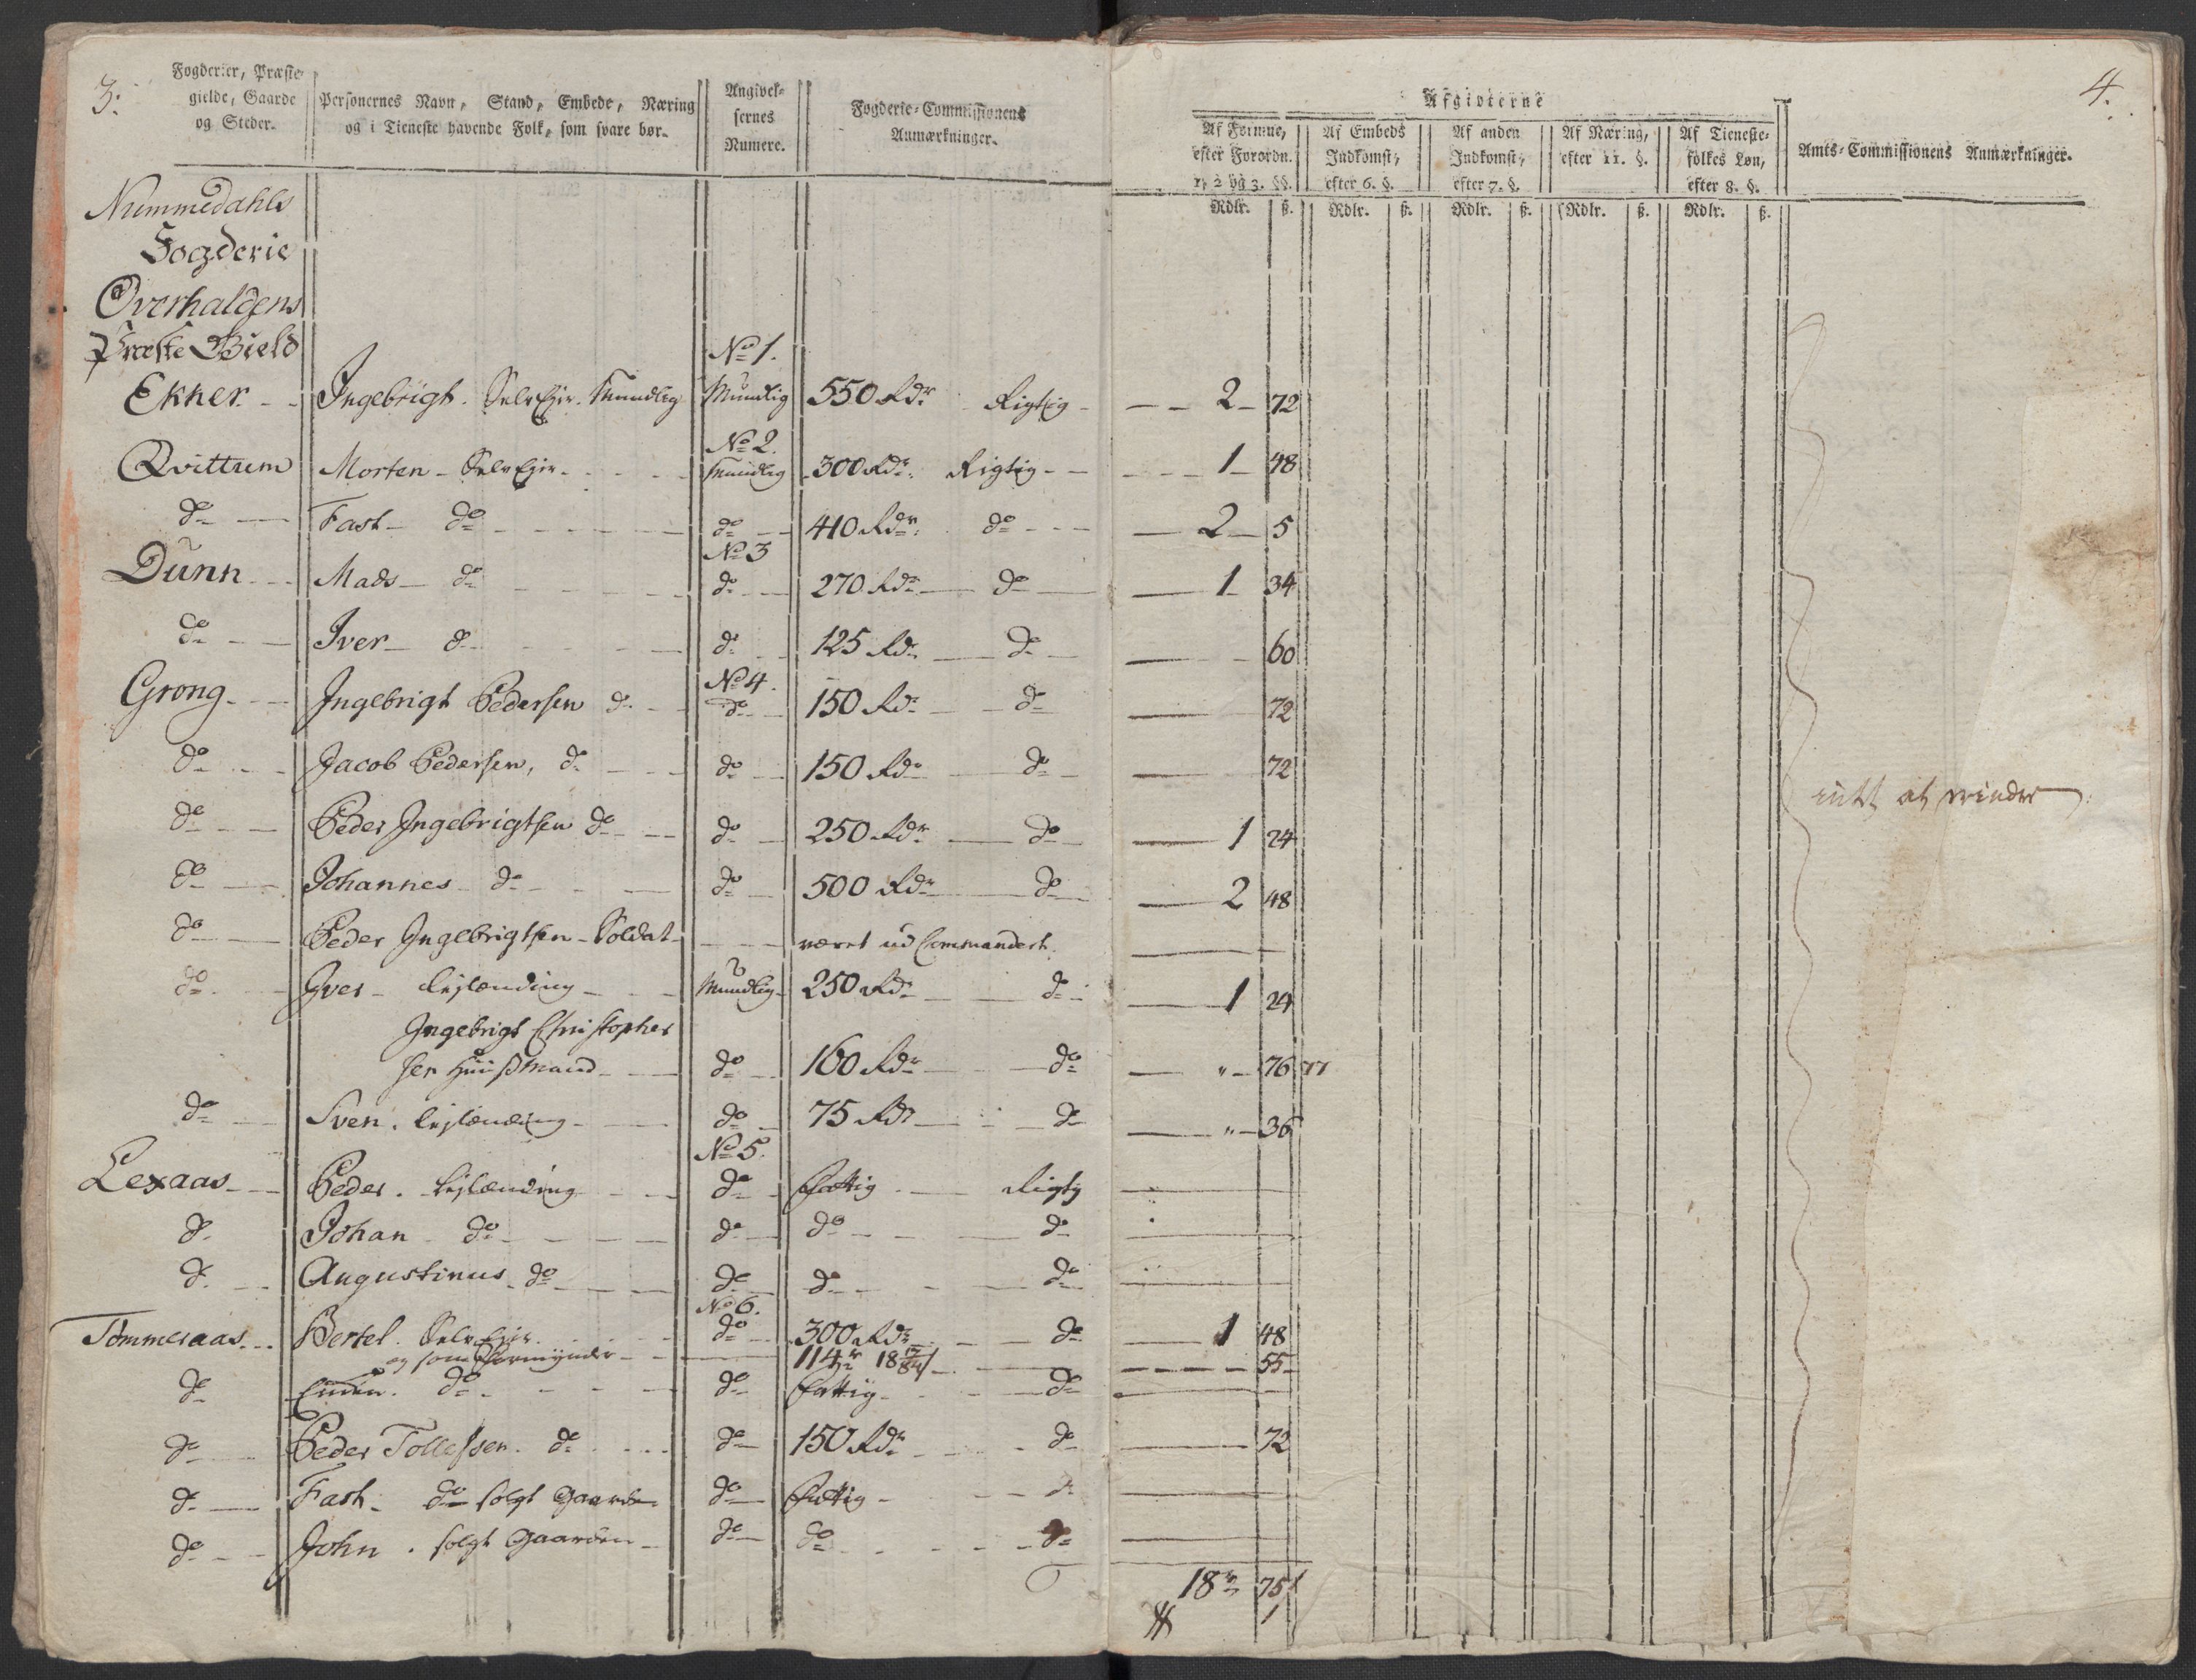 3.
Fogderier, Præste-
gielde, Gaarde
og Steder.
Personernes Navn, Stand, Embede, Næring
og i Tieneste havende Folk, som svare bør.
Angivel-
sernes
Numere.
Fogderie-Commissionens
Anmærkninger.
Nummedahls
Fogderie
Overhaldens
Præste Gield
No 1.
Ekner - - Ingebrigt. SelvEjer. Mundlig 550 Rdr. Rigtig -
No 2.
Qvittum Morten - SelvEjer - - - Mundlig 300 Rdr. Rigtig - -
do - Fast - do - - - do - 410 Rdr. do - - -
No 3
Dunn - - Mads - do - - - do - 270 Rdr - do -
do - - Iver - do - - - do 125 Rdr - do -
No 4.
Grong - - Ingebrigt Pedersen do - - do 150 Rdr - do
do - - Jacob Pedersen, do - - do 150 Rdr - do -
do - - Peder Ingebrigtsen do - - do 250 Rdr - do -
do - Johannes - do - - do 500 Rdr - do -
do - Peder Ingebrigtsen - Soldat - - - været ud Commandert.
do - Iver - Lejlænding - - Mundlig - 250 Rdr - do -
Ingebrigt Christopher
sen Huusmand - - do - 160 Rdr - do
do - Sven. Lejlænding - - do - 75 Rdr - do
No 5.
Lexaas - - Peder. Lejlænding - - do - Fattig - Rigtig
do Johan - do - - - do - do - - do
do - - Augustinus - do - - do - do - - do
No 6.
Tømmeraas - - Bertel. SelvEjer - - do - 300 Rdr - do
og som Formynder - - 114 r 18
do do - - - do Fattig - - do
do - Peder Tollefsen. do - - do - 150 Rdr - - do
do - Fast - do solgt Gaarden do - Fattig - - do
do - - John. solgt Gaarden - do - do - - - do
4.
Afgivterne
Af Formue,
efter Forordn.
1, 2 og 3. §§.
Af Embeds
Indkomst,
efter 6. §.
Af anden
Indkomst,
efter 7. §.
Af Næring,
efter 11. §.
Af Tieneste-
folkes Løn,
efter 8. §.
Amts-Commissionens Anmærkninger.
Rdlr. ß. Rdlr. ß. Rdlr. ß. Rdlr. ß. Rdlr. ß.
2 - 72
1 - 48
2 - 5
1 - 34
60
72
72
intet at erindre
1 24
2 48
1 24
" - 76 77
" - 36
1 48
55
72
18 r 75